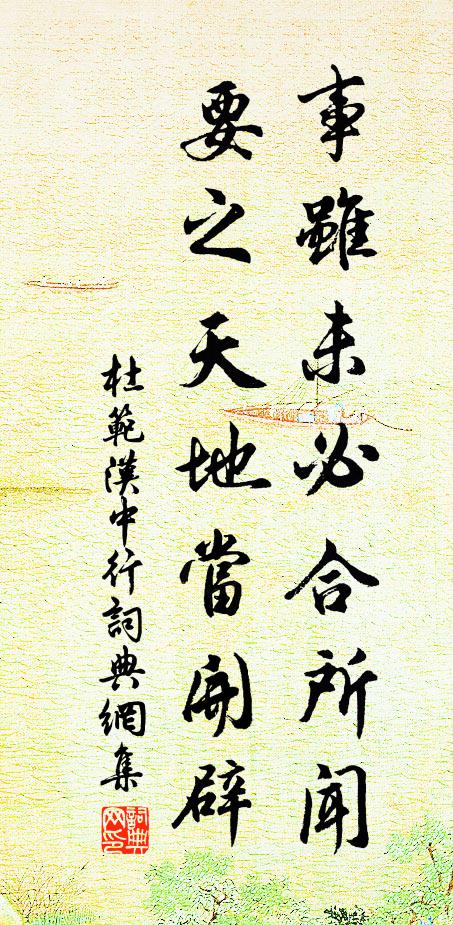 事雖未必合所聞
要之天地當開辟
杜範漢中行詞典網集
詞典網印